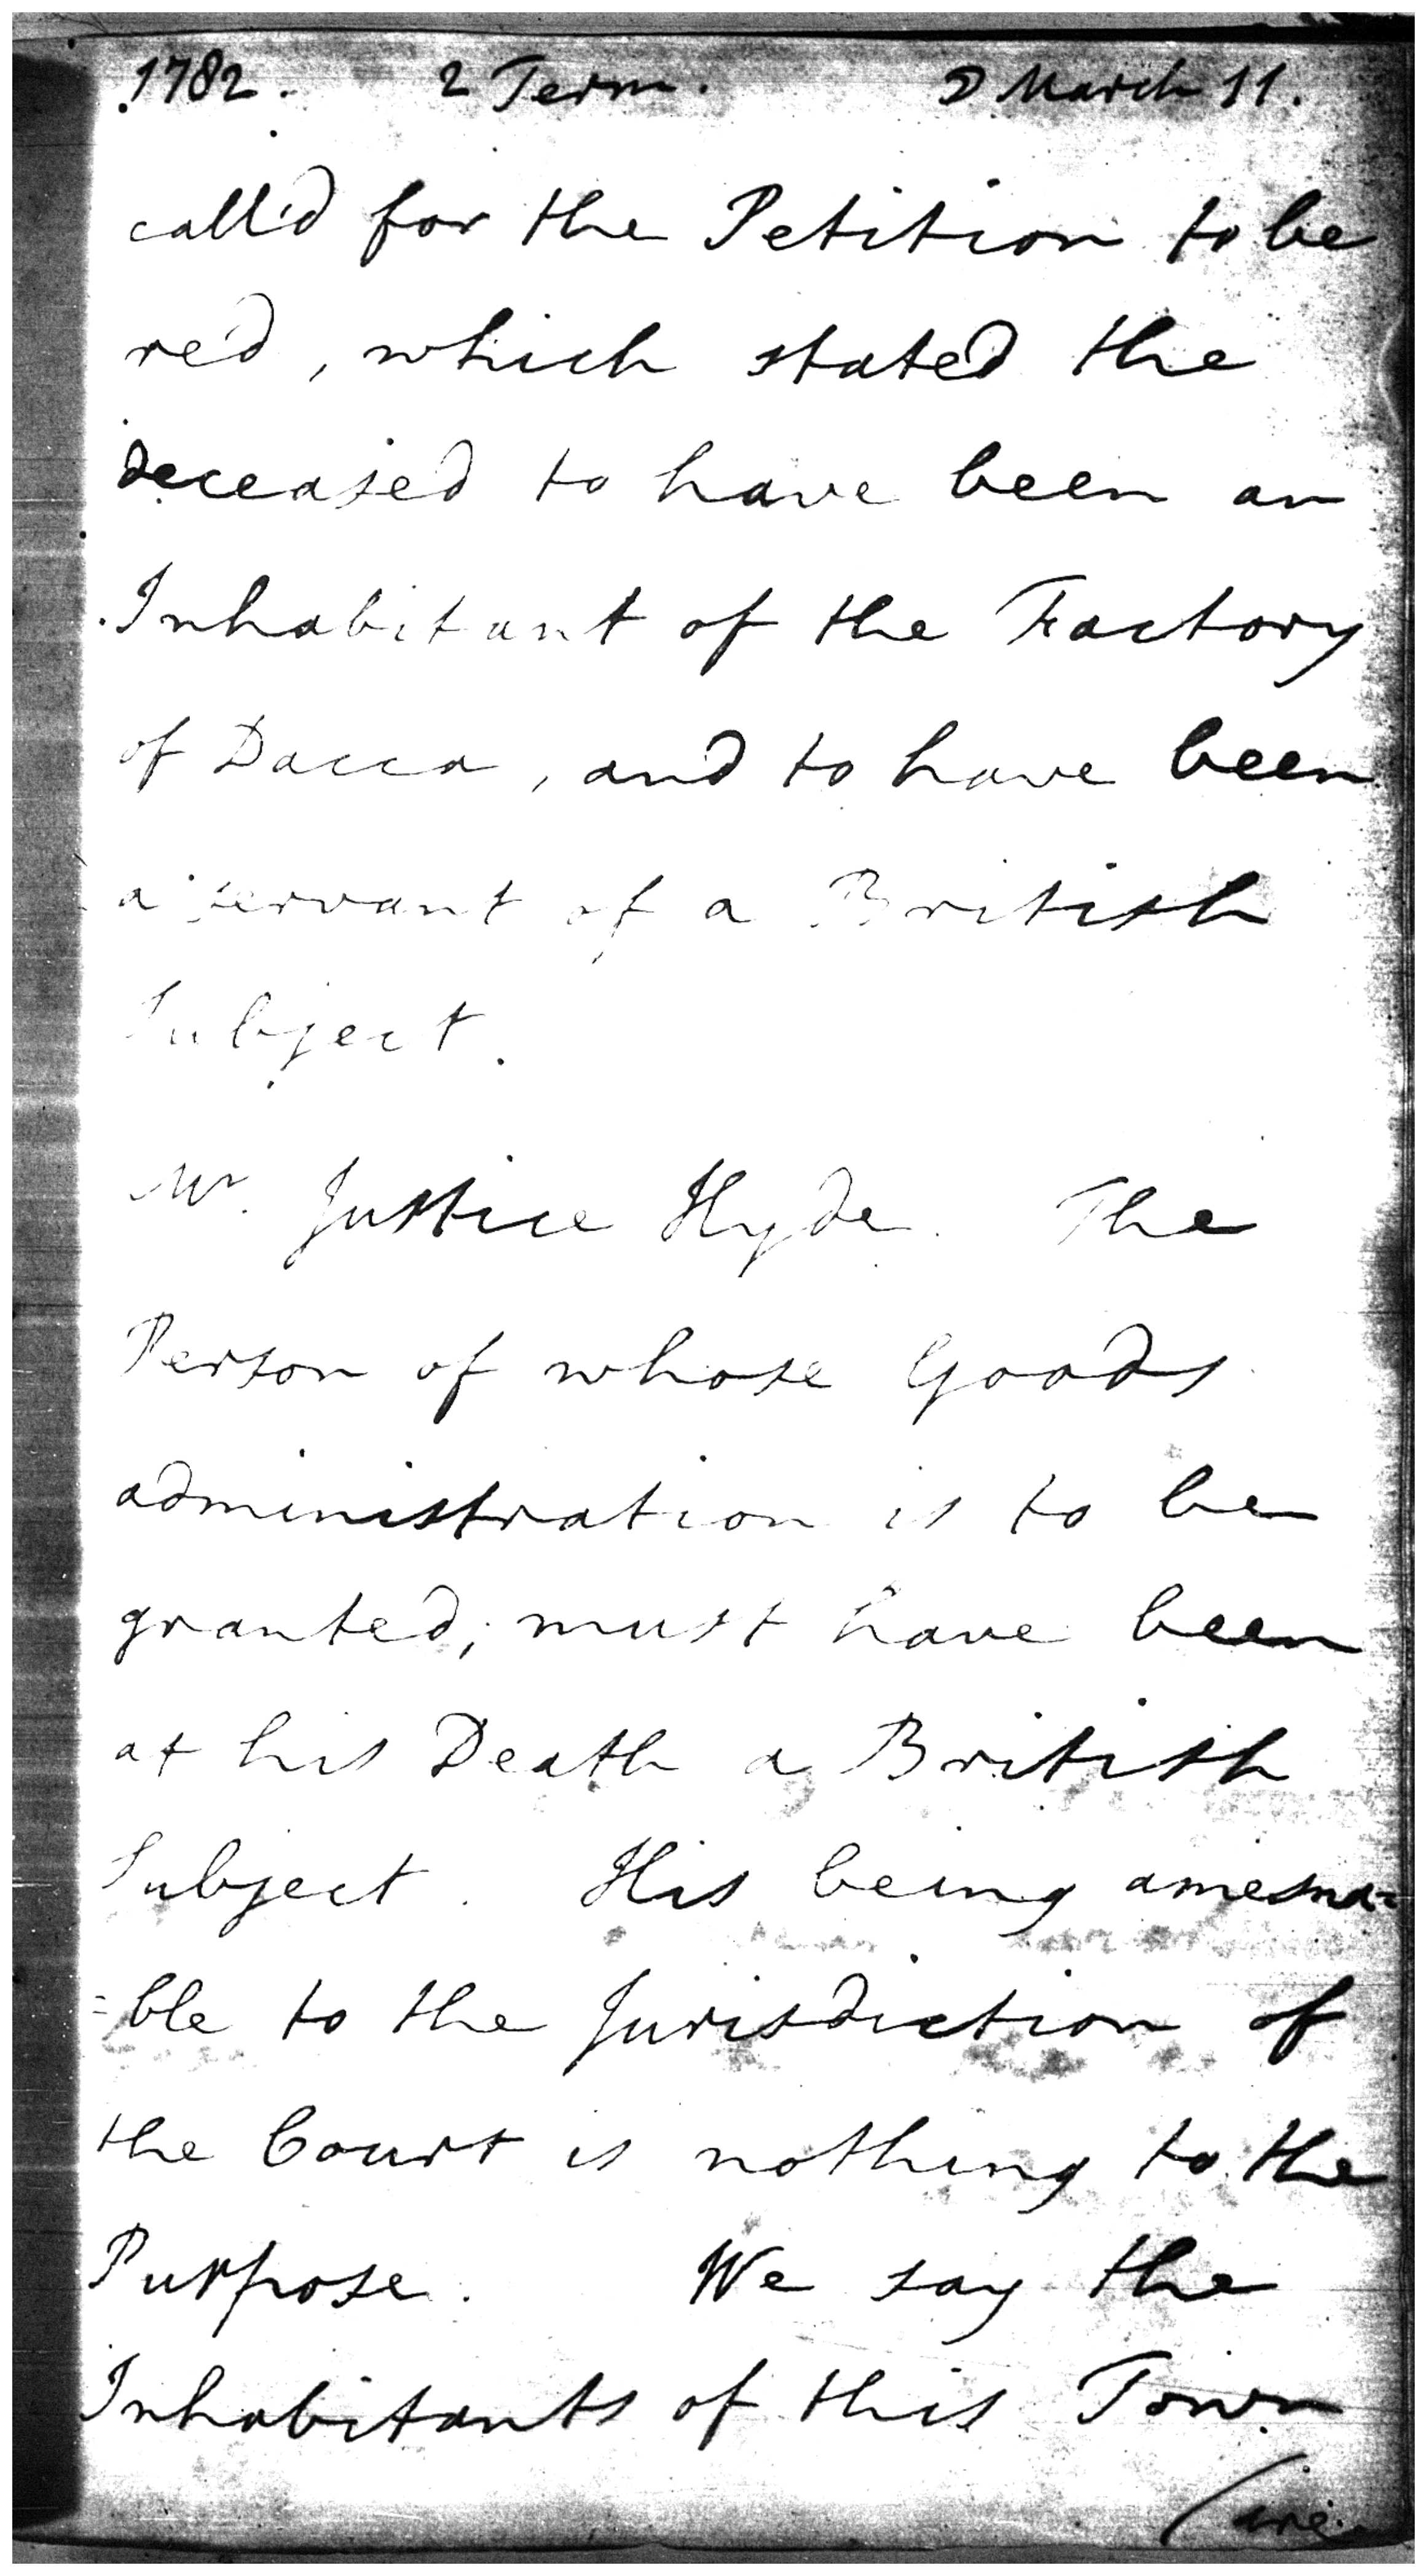 1782. 2 Term. ☽ March 11.
call'd for the Petition to be
red, which stated the
deceased to have been an
Inhabitant of the Factory
of Dacca, and to have been
a servant of a British
Subject.
Mr. Justice Hyde. The
Person of whose Goods
administration is to be
granted, must have been
at his Death a British
Subject. His being amesna=
=ble to the Jurisdiction of
the Court is nothing to the
Purpose. We say the
Inhabitants of this Town
(are